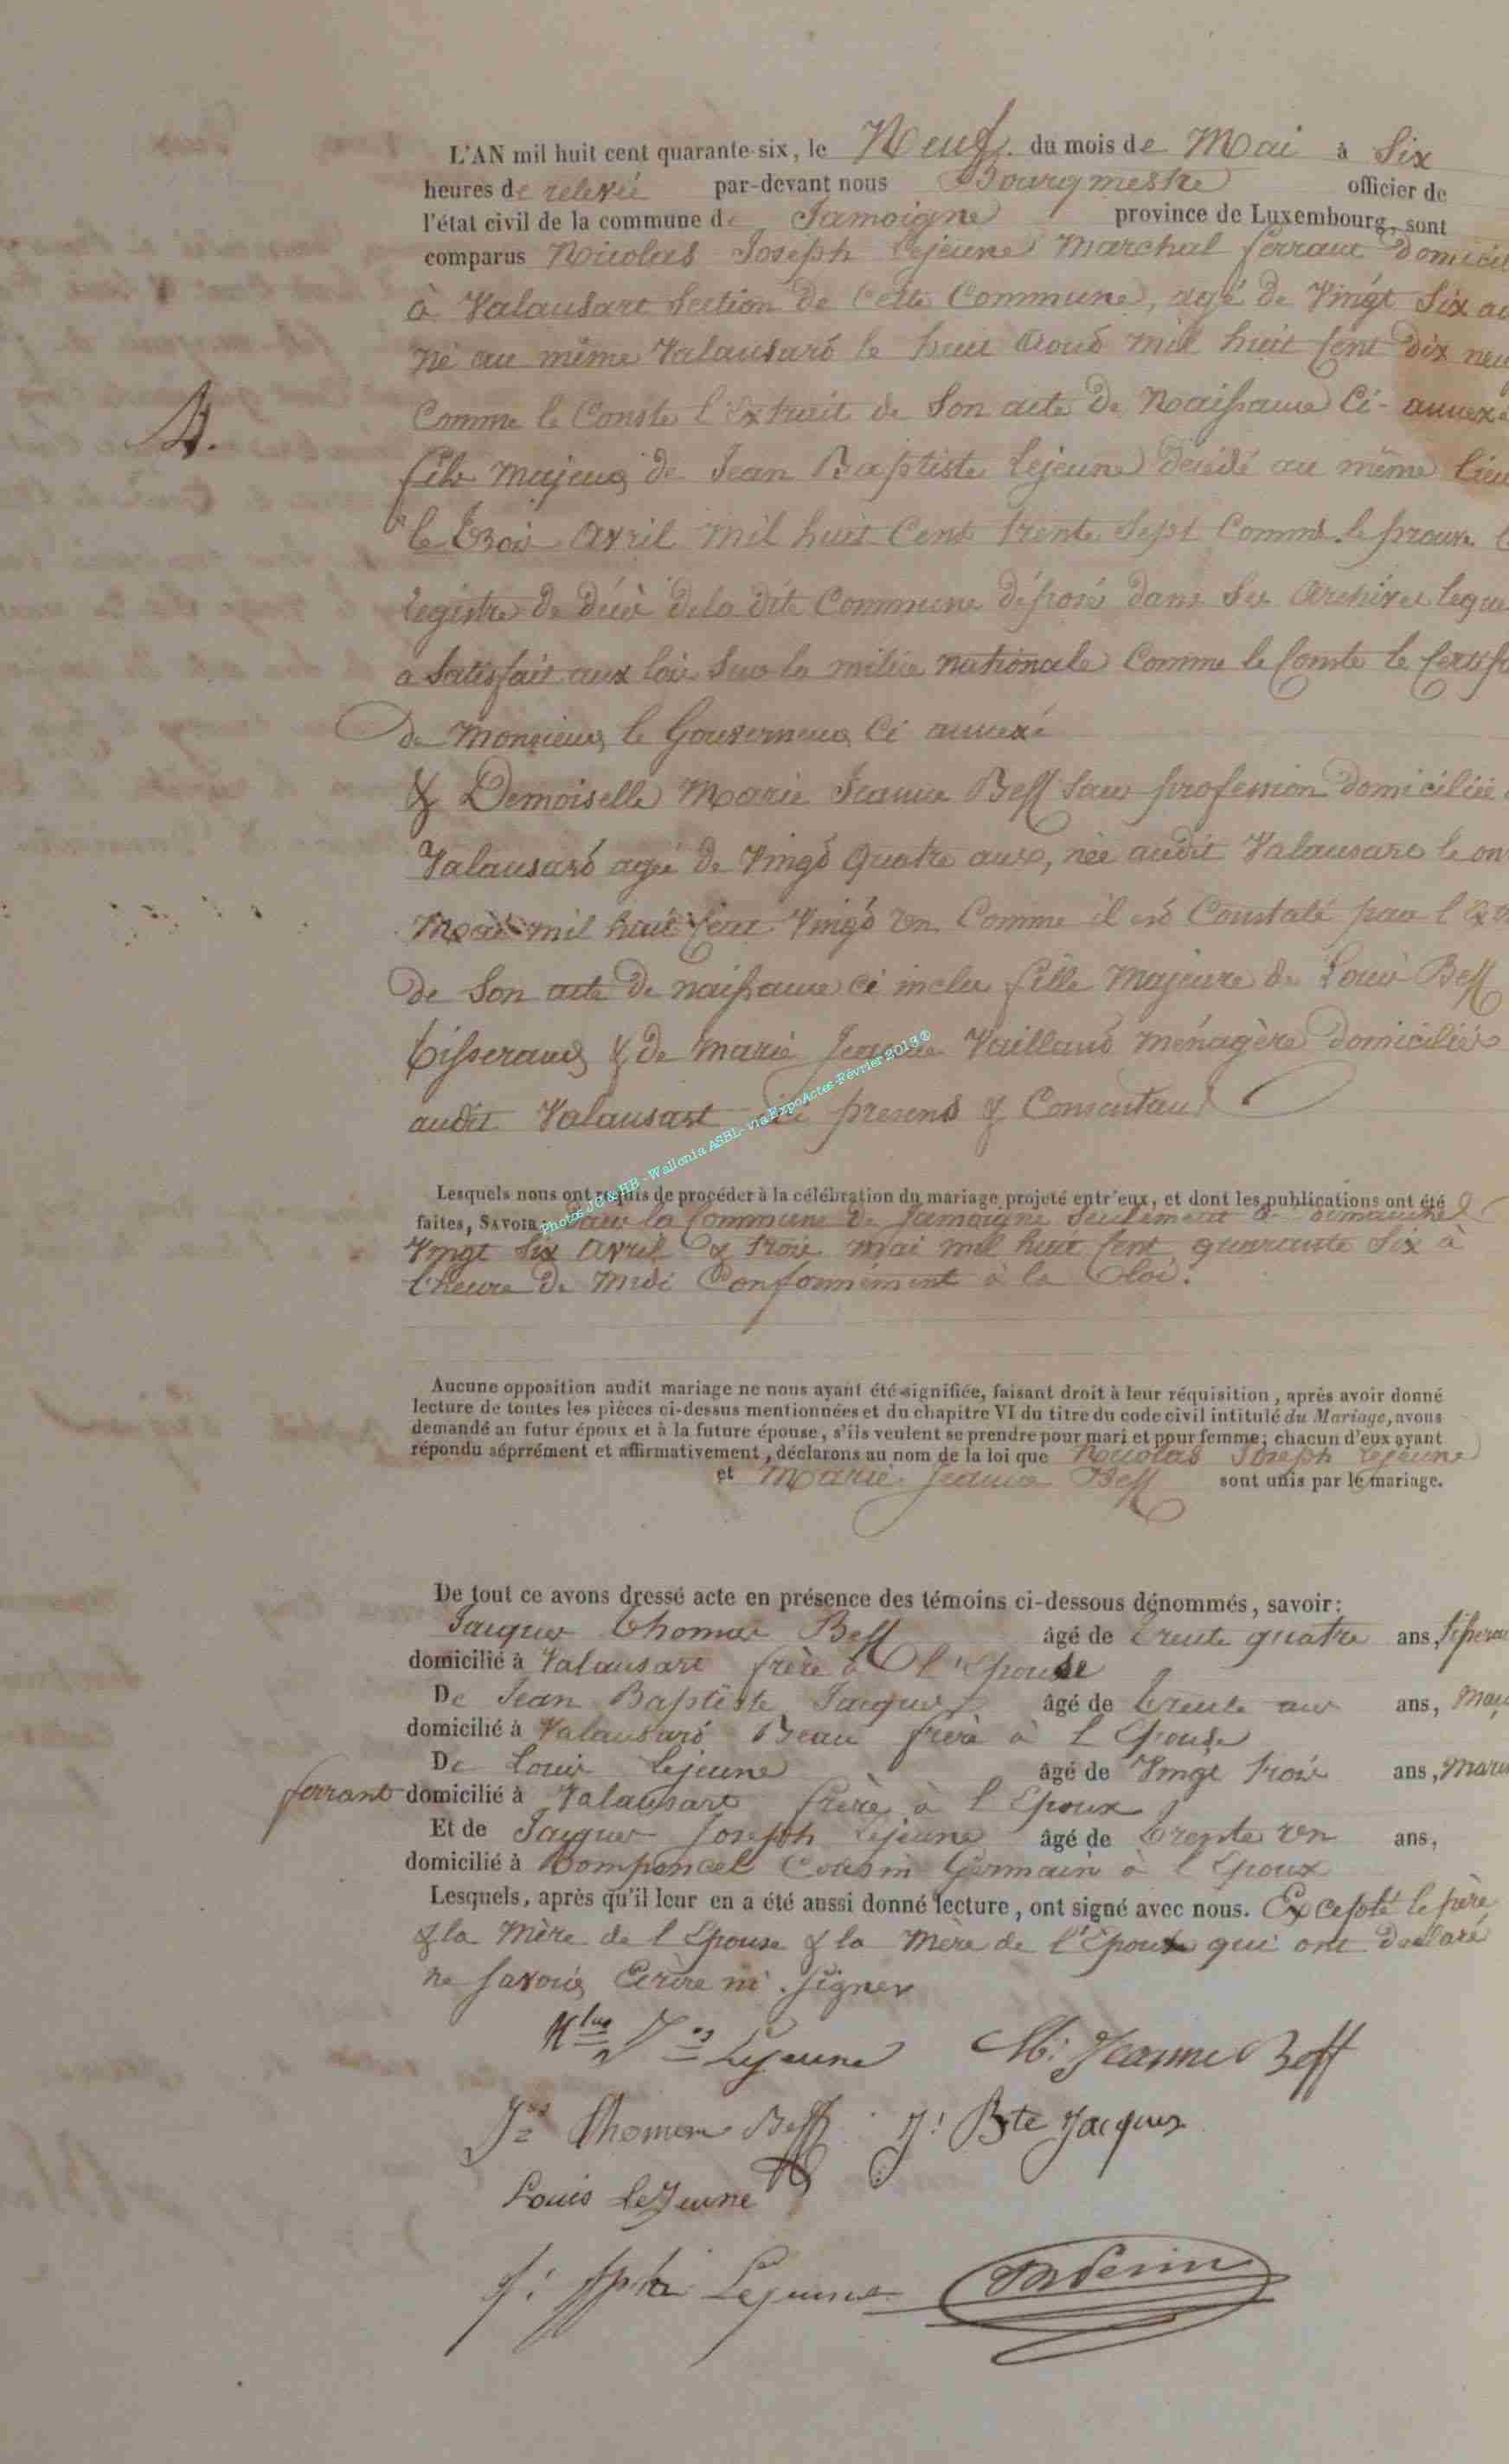 L'AN mil huit cent quarante-six, le Neuf. du mois de Mai à Six
heures de relevée par-devant nous Bourgmestre officier de
l'état civil de la commune de Jamoigne province de Luxembourg, sont
comparus Nicolas Joseph Lejeune Marchal ferrant domicil
à Valansart Section de Cette Commune, agé de Vingt Six an
né au même Valansart le huit Aout mil huit Cent dix neu
4.
Comme le Conste l'Extrait de Son acte de Naissance Ci-annexé
fils majeur de Jean Baptiste Lejeune décédé au même lieu
le trois Avril mil huit Cent trente Sept Comme le prouve l
registre de décès de la dite Commune déposé dans Ses Archives lequ
a Satisfait aux lois Sur la milice nationale Comme le Conste le Certifi
de Monsieur le Gouverneur Ci annexé
& Demoiselle Marie Jeanne Beff Sans profession domiciliée
Valansart agée de Vingt Quatre ans, née audit Valansart le on
mil huit Cent Vingt un Comme il est Constaté par l'Ext
de Son acte de naissance ci inclus fille Majeure de Louis Beff
tisserand & de Marie Jeanne Vaillant ménagère domiciliés
audit Valansart ici présens & Consentant
Photos JC & HB - Wallonia ASBL - via ExpoActes-Février 2013®
Lesquels nous ont requis de procéder à la célébration du mariage projeté entr'eux, et dont les publications ont été
faites, SAVOIR: dans la Commune de Jamoigne Seulement Dimanche
Vingt Six Avril & trois mai mil huit Cent quarante Six à
l'heure de Midi Conformément à la Loi.
Aucune opposition audit mariage ne nous ayant été signifiée, faisant droit à leur réquisition, après avoir donné
lecture de toutes les pièces ci-dessus mentionnées et du chapitre VI du titre du code civil intitulé du Mariage, avons
demandé au futur époux et à la future épouse, s'ils veulent se prendre pour mari et pour femme; chacun d'eux ayant
répondu séprrément et affirmativement, déclarons au nom de la loi que Nicolas Joseph Lejeune
et Marie Jeanne Beff sont unis par le mariage.
De tout ce avons dressé acte en présence des témoins ci-dessous dénommés, savoir:
Jacques Thomas Beff âgé de trente quatre ans, tisseran
domicilié à Valansart frère à l'Epouse
De Jean Baptiste Jacques âgé de trente ans ans, Maç
domicilié à Valansart Beau frère à l'Epouse
De Louis Lejeune âgé de Vingt trois ans, Mare
ferrant domicilié à Valansart frère à l'Epoux
Et de Jacques Joseph Lejeune âgé de trente un ans,
domicilié à Romponcel Cousin Germain à l'Epoux
Lesquels, après qu'il leur en a été aussi donné lecture, ont signé avec nous. Excepté le père
& la Mère de l'Epouse & la Mère de l'Epoux qui ont déclaré
ne Savoir Ecrire ni Signer
Lejeune M: Jeanne Beff
Thomas Beff J: Bte Jacques
Louis LeJeune
Lejeune